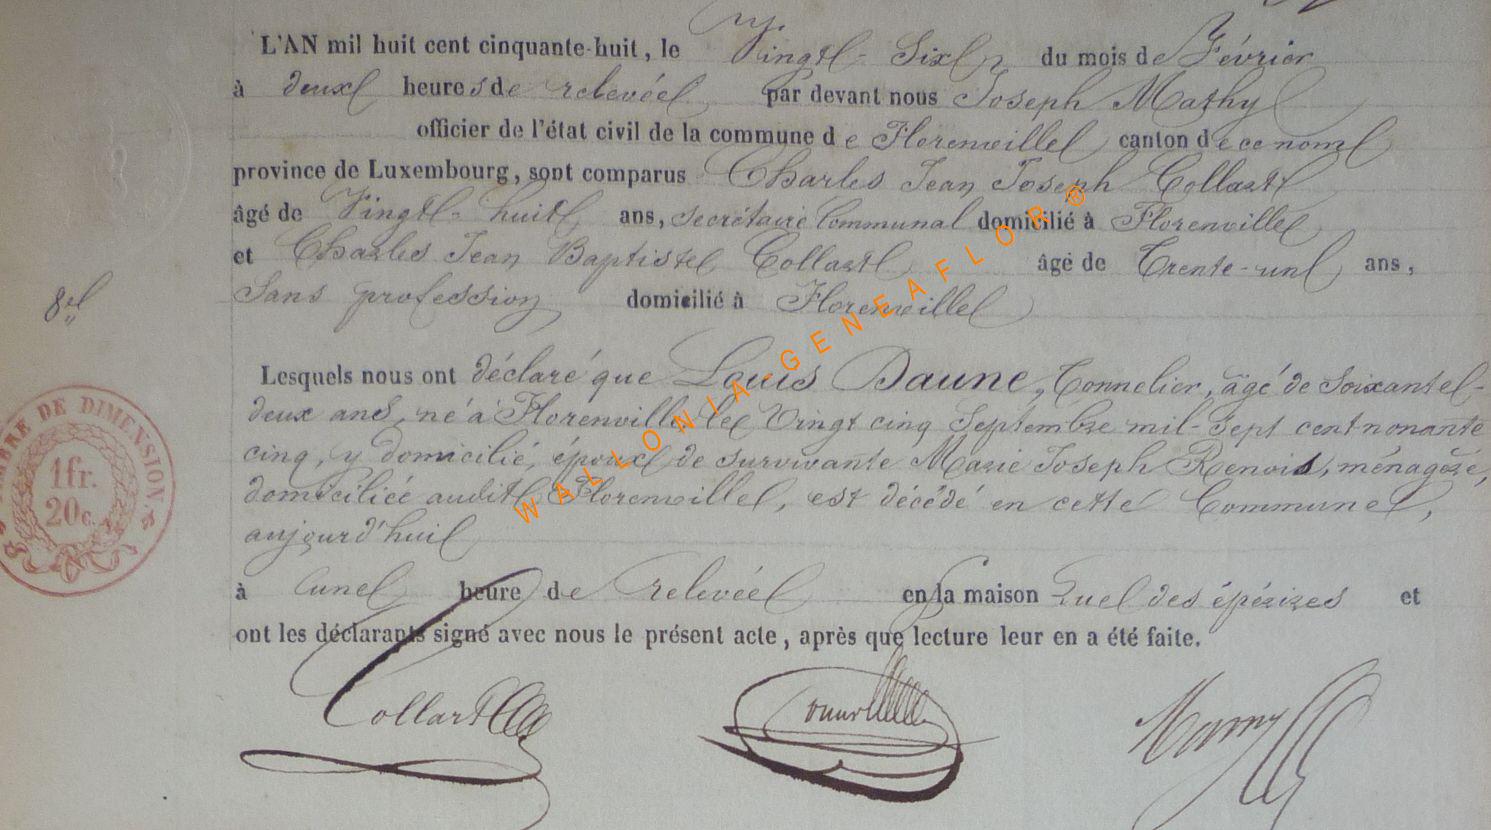 L'AN mil huit cent cinquante-huit, le Vingt-Six du mois de Février
à deux heures de relevée par devant nous Joseph Mathy
officier de l'état civil de la commune de Florenville canton de ce nom
province de Luxembourg, sont comparus Charles Jean Joseph Collart
âgé de Vingt-huit ans, secrétaire Communal domicilié à Florenville
et Charles Jean Baptiste Collart âgé de Trente-un ans,
Sans profession domicilié à Florenville
8e
Lesquels nous ont déclaré que Louis Daune, Tonnelier, âgé de Soixante-
deux ans, né à Florenville le Vingt cinq Septembre mil-Sept cent nonante
cinq, y domicilié, époux de survivante Marie Joseph Renois, ménagère,
domiciliée audit Florenville, est décédé en cette Commune,
aujourd'hui
à une heure de relevée en la maison Ruel des épérires et
ont les déclarants signé avec nous le présent acte, après que lecture leur en a été faite.
TIMBRE DE DIMENSION.
1 fr.
20 c.
WALLONIA-GENEAFLOR®
Collart